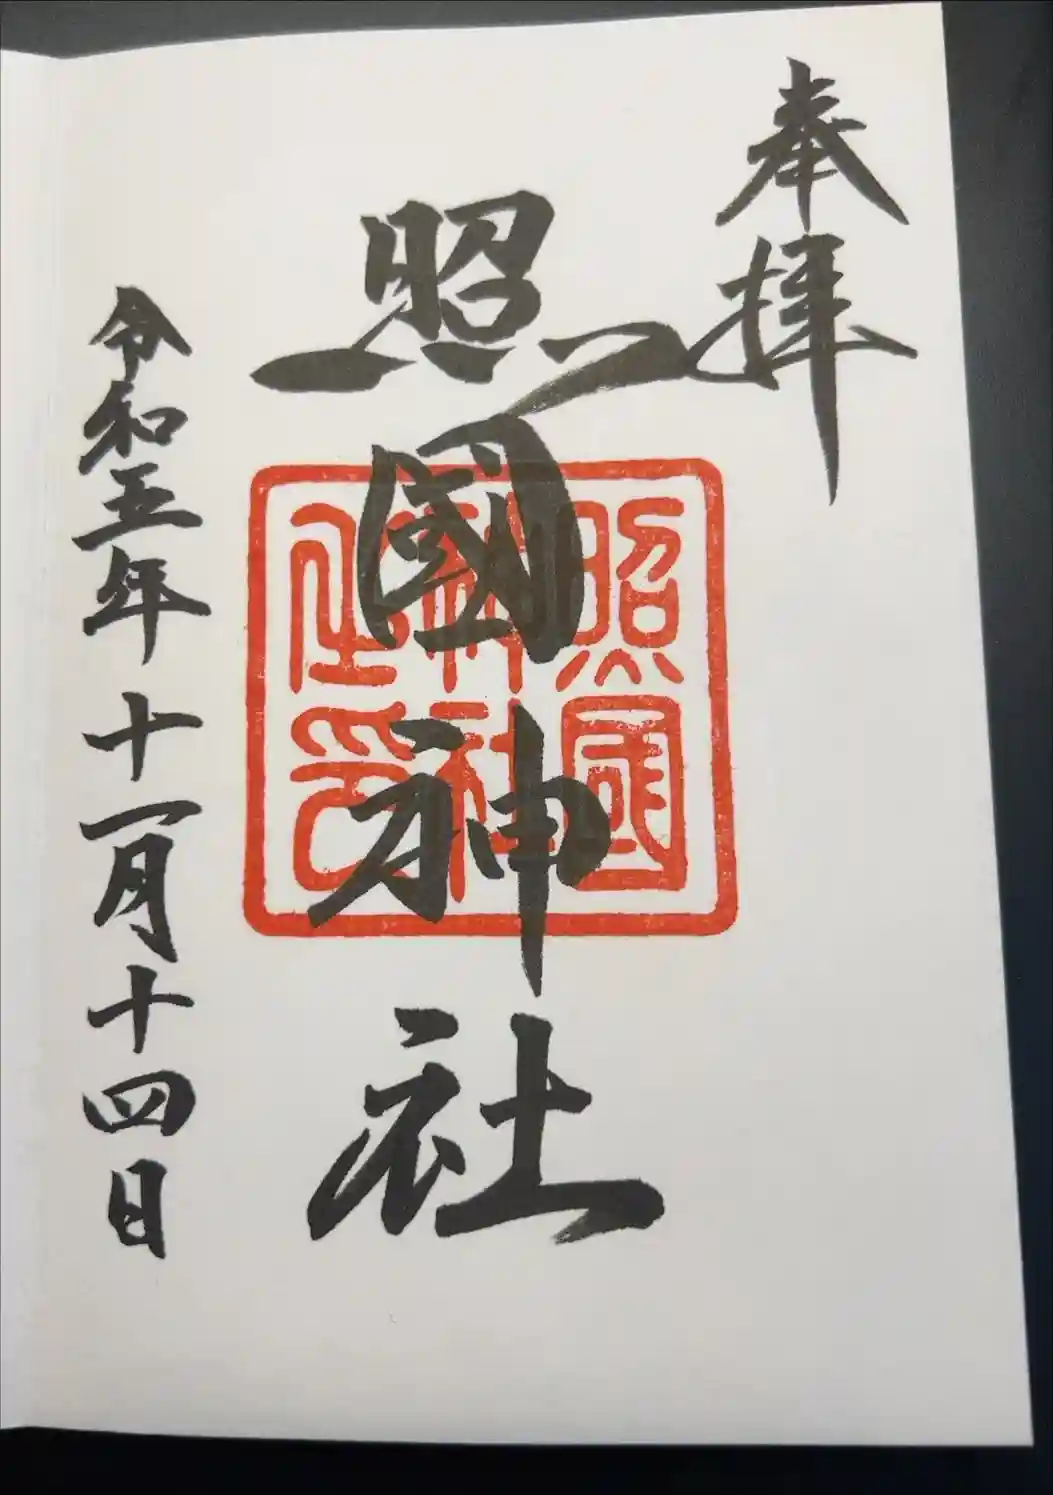 奉拝
照國神社
照國
神社
之印
令和五年十一月十四日